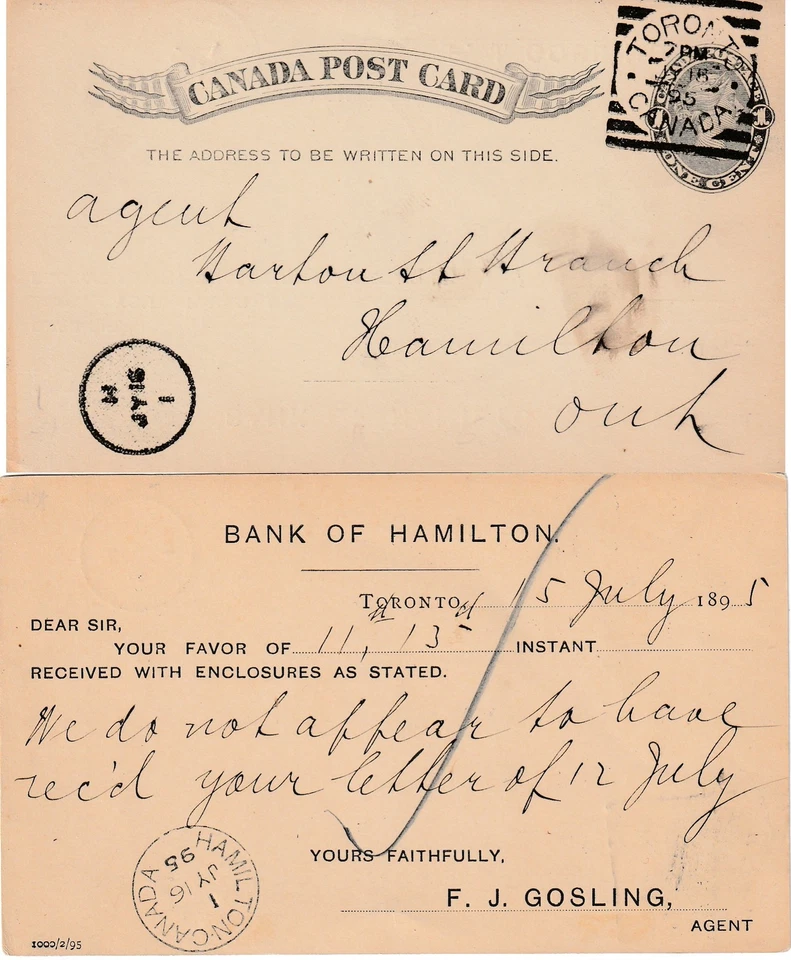 CANADA POST CARD
TORONT
2 PM
16
95
CANADA
1 1
THE ADDRESS TO BE WRITTEN ON THIS SIDE.
agent
Barton St Branch
Hamilton
Ont
H
JY 16
1
BANK OF HAMILTON.
TORONTO, 15 July 1895
DEAR SIR,
YOUR FAVOR OF 11, 13 INSTANT
RECEIVED WITH ENCLOSURES AS STATED.
We do not appear to have
rec'd your letter of 12 July
YOURS FAITHFULLY,
F. J. GOSLING,
AGENT
HAMILTON·CANADA
1
JY 16
95
1000/2/95